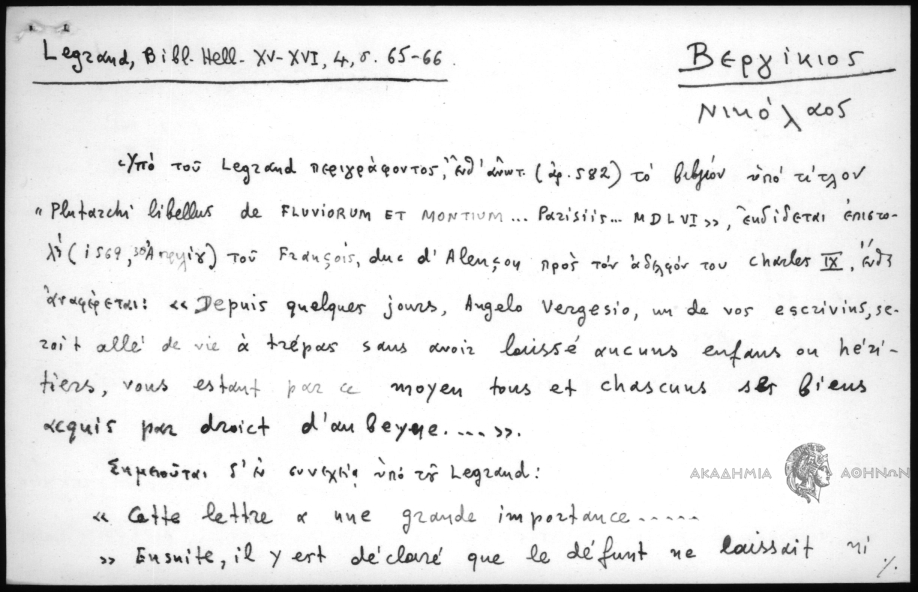 Legrand, Bibl. Hell. XV-XVI, 4, σ. 65-66.
Βεργίκιος
Νικόλαος
Ὑπὸ τοῦ Legrand περιγράφοντος, ἔνθ' ἀνωτ. (ἀρ. 582) τὸ βιβλίον ὑπὸ τίτλον
"Plutarchi libellus de FLUVIORUM ET MONTIUM... Parisiis... MDLVI», ἐκδίδεται ἐπιστο-
λὴ (1569, 30 Ἀπριλίου) τοῦ François, duc d'Alençon πρὸς τὸν ἀδελφόν του Charles IX, ἔνθα
ἀναφέρεται: «Depuis quelques jours, Angelo Vergesio, un de vos escrivins, se-
roit allé de vie à trépas sans avoir laissé aucuns enfans ou héri-
tiers, vous estant par ce moyen tous et chascuns ses biens
acquis par droict d'aubeyne....».
Σημειοῦται δ' ἐν συνεχείᾳ ὑπὸ τοῦ Legrand:
« Cette lettre a une grande importance.....
» Ensuite, il y est déclaré que le défunt ne laissait ni
./.
ΑΚΑΔΗΜΙΑ ΑΘΗΝΩΝ